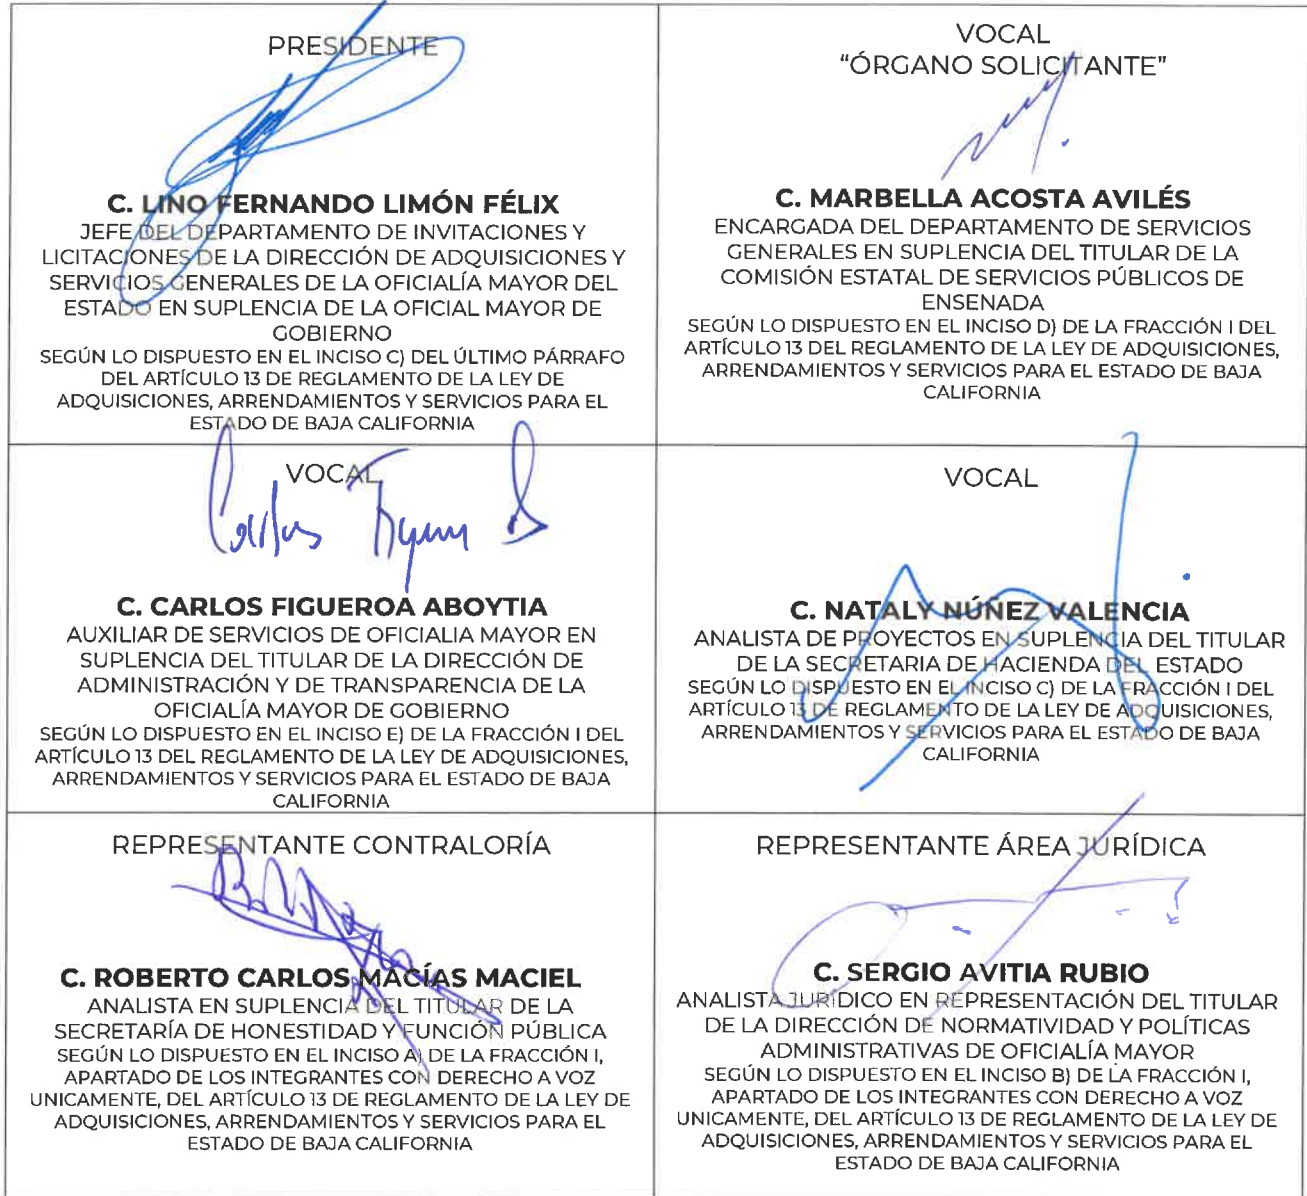 PRESIDENTE
C. LINO FERNANDO LIMÓN FÉLIX
JEFE DEL DEPARTAMENTO DE INVITACIONES Y
LICITACIONES DE LA DIRECCIÓN DE ADQUISICIONES Y
SERVICIOS GENERALES DE LA OFICIALÍA MAYOR DEL
ESTADO EN SUPLENCIA DE LA OFICIAL MAYOR DE
GOBIERNO
SEGÚN LO DISPUESTO EN EL INCISO C) DEL ÚLTIMO PÁRRAFO
DEL ARTÍCULO 13 DE REGLAMENTO DE LA LEY DE
ADQUISICIONES, ARRENDAMIENTOS Y SERVICIOS PARA EL
ESTADO DE BAJA CALIFORNIA
VOCAL
“ÓRGANO SOLICITANTE”
C. MARBELLA ACOSTA AVILÉS
ENCARGADA DEL DEPARTAMENTO DE SERVICIOS
GENERALES EN SUPLENCIA DEL TITULAR DE LA
COMISIÓN ESTATAL DE SERVICIOS PÚBLICOS DE
ENSENADA
SEGÚN LO DISPUESTO EN EL INCISO D) DE LA FRACCIÓN I DEL
ARTÍCULO 13 DEL REGLAMENTO DE LA LEY DE ADQUISICIONES,
ARRENDAMIENTOS Y SERVICIOS PARA EL ESTADO DE BAJA
CALIFORNIA
VOCAL
Carlos
C. CARLOS FIGUEROA ABOYTIA
AUXILIAR DE SERVICIOS DE OFICIALIA MAYOR EN
SUPLENCIA DEL TITULAR DE LA DIRECCIÓN DE
ADMINISTRACIÓN Y DE TRANSPARENCIA DE LA
OFICIALÍA MAYOR DE GOBIERNO
SEGÚN LO DISPUESTO EN EL INCISO E) DE LA FRACCIÓN I DEL
ARTÍCULO 13 DEL REGLAMENTO DE LA LEY DE ADQUISICIONES,
ARRENDAMIENTOS Y SERVICIOS PARA EL ESTADO DE BAJA
CALIFORNIA
VOCAL
C. NATALY NÚÑEZ VALENCIA
ANALISTA DE PROYECTOS EN SUPLENCIA DEL TITULAR
DE LA SECRETARIA DE HACIENDA DEL ESTADO
SEGÚN LO DISPUESTO EN EL INCISO C) DE LA FRACCIÓN I DEL
ARTÍCULO 13 DE REGLAMENTO DE LA LEY DE ADQUISICIONES,
ARRENDAMIENTOS Y SERVICIOS PARA EL ESTADO DE BAJA
CALIFORNIA
REPRESENTANTE CONTRALORÍA
C. ROBERTO CARLOS MACÍAS MACIEL
ANALISTA EN SUPLENCIA DEL TITULAR DE LA
SECRETARÍA DE HONESTIDAD Y FUNCIÓN PÚBLICA
SEGÚN LO DISPUESTO EN EL INCISO A) DE LA FRACCIÓN I,
APARTADO DE LOS INTEGRANTES CON DERECHO A VOZ
UNICAMENTE, DEL ARTÍCULO 13 DE REGLAMENTO DE LA LEY DE
ADQUISICIONES, ARRENDAMIENTOS Y SERVICIOS PARA EL
ESTADO DE BAJA CALIFORNIA
REPRESENTANTE ÁREA JURÍDICA
C. SERGIO AVITIA RUBIO
ANALISTA JURÍDICO EN REPRESENTACIÓN DEL TITULAR
DE LA DIRECCIÓN DE NORMATIVIDAD Y POLÍTICAS
ADMINISTRATIVAS DE OFICIALÍA MAYOR
SEGÚN LO DISPUESTO EN EL INCISO B) DE LA FRACCIÓN I,
APARTADO DE LOS INTEGRANTES CON DERECHO A VOZ
UNICAMENTE, DEL ARTÍCULO 13 DE REGLAMENTO DE LA LEY DE
ADQUISICIONES, ARRENDAMIENTOS Y SERVICIOS PARA EL
ESTADO DE BAJA CALIFORNIA